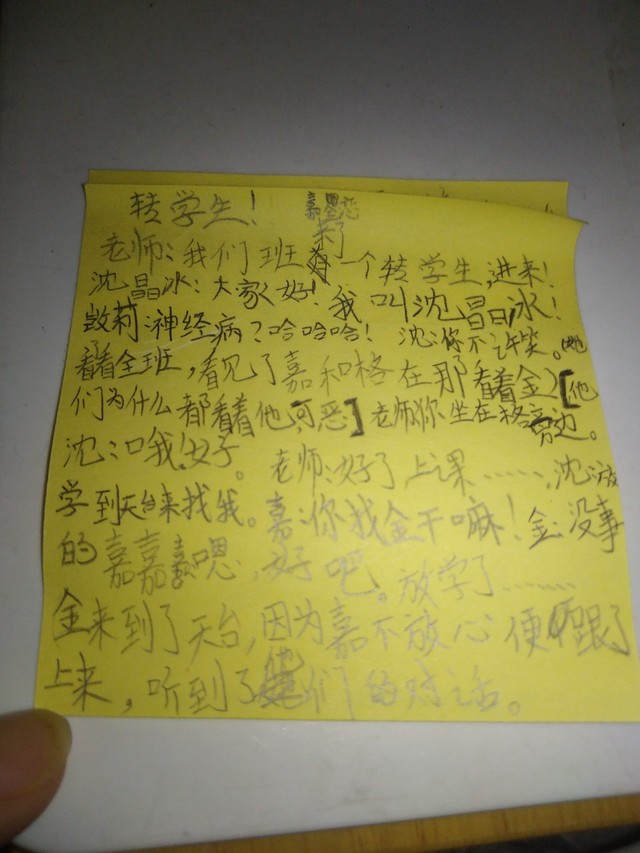 转学生！ 嘉金恋
老师：我们班来了一个转学生，进来！
沈晶冰：大家好！我叫沈晶冰！
敳莉：神经病？哈哈哈！ 沈：你不许笑。（她
看着全班，看见了嘉和格在那看着金）【他
们为什么都看着他可恶】老师：你坐在格旁边。
沈：哦！好。 老师：好了上课……沈：放
学到天台来找我。嘉：你找金干嘛！金：没事
的嘉嘉。嘉：嗯，好吧。放学了……
金来到了天台，因为嘉不放心便跟了
上来，听到了她们的对话。